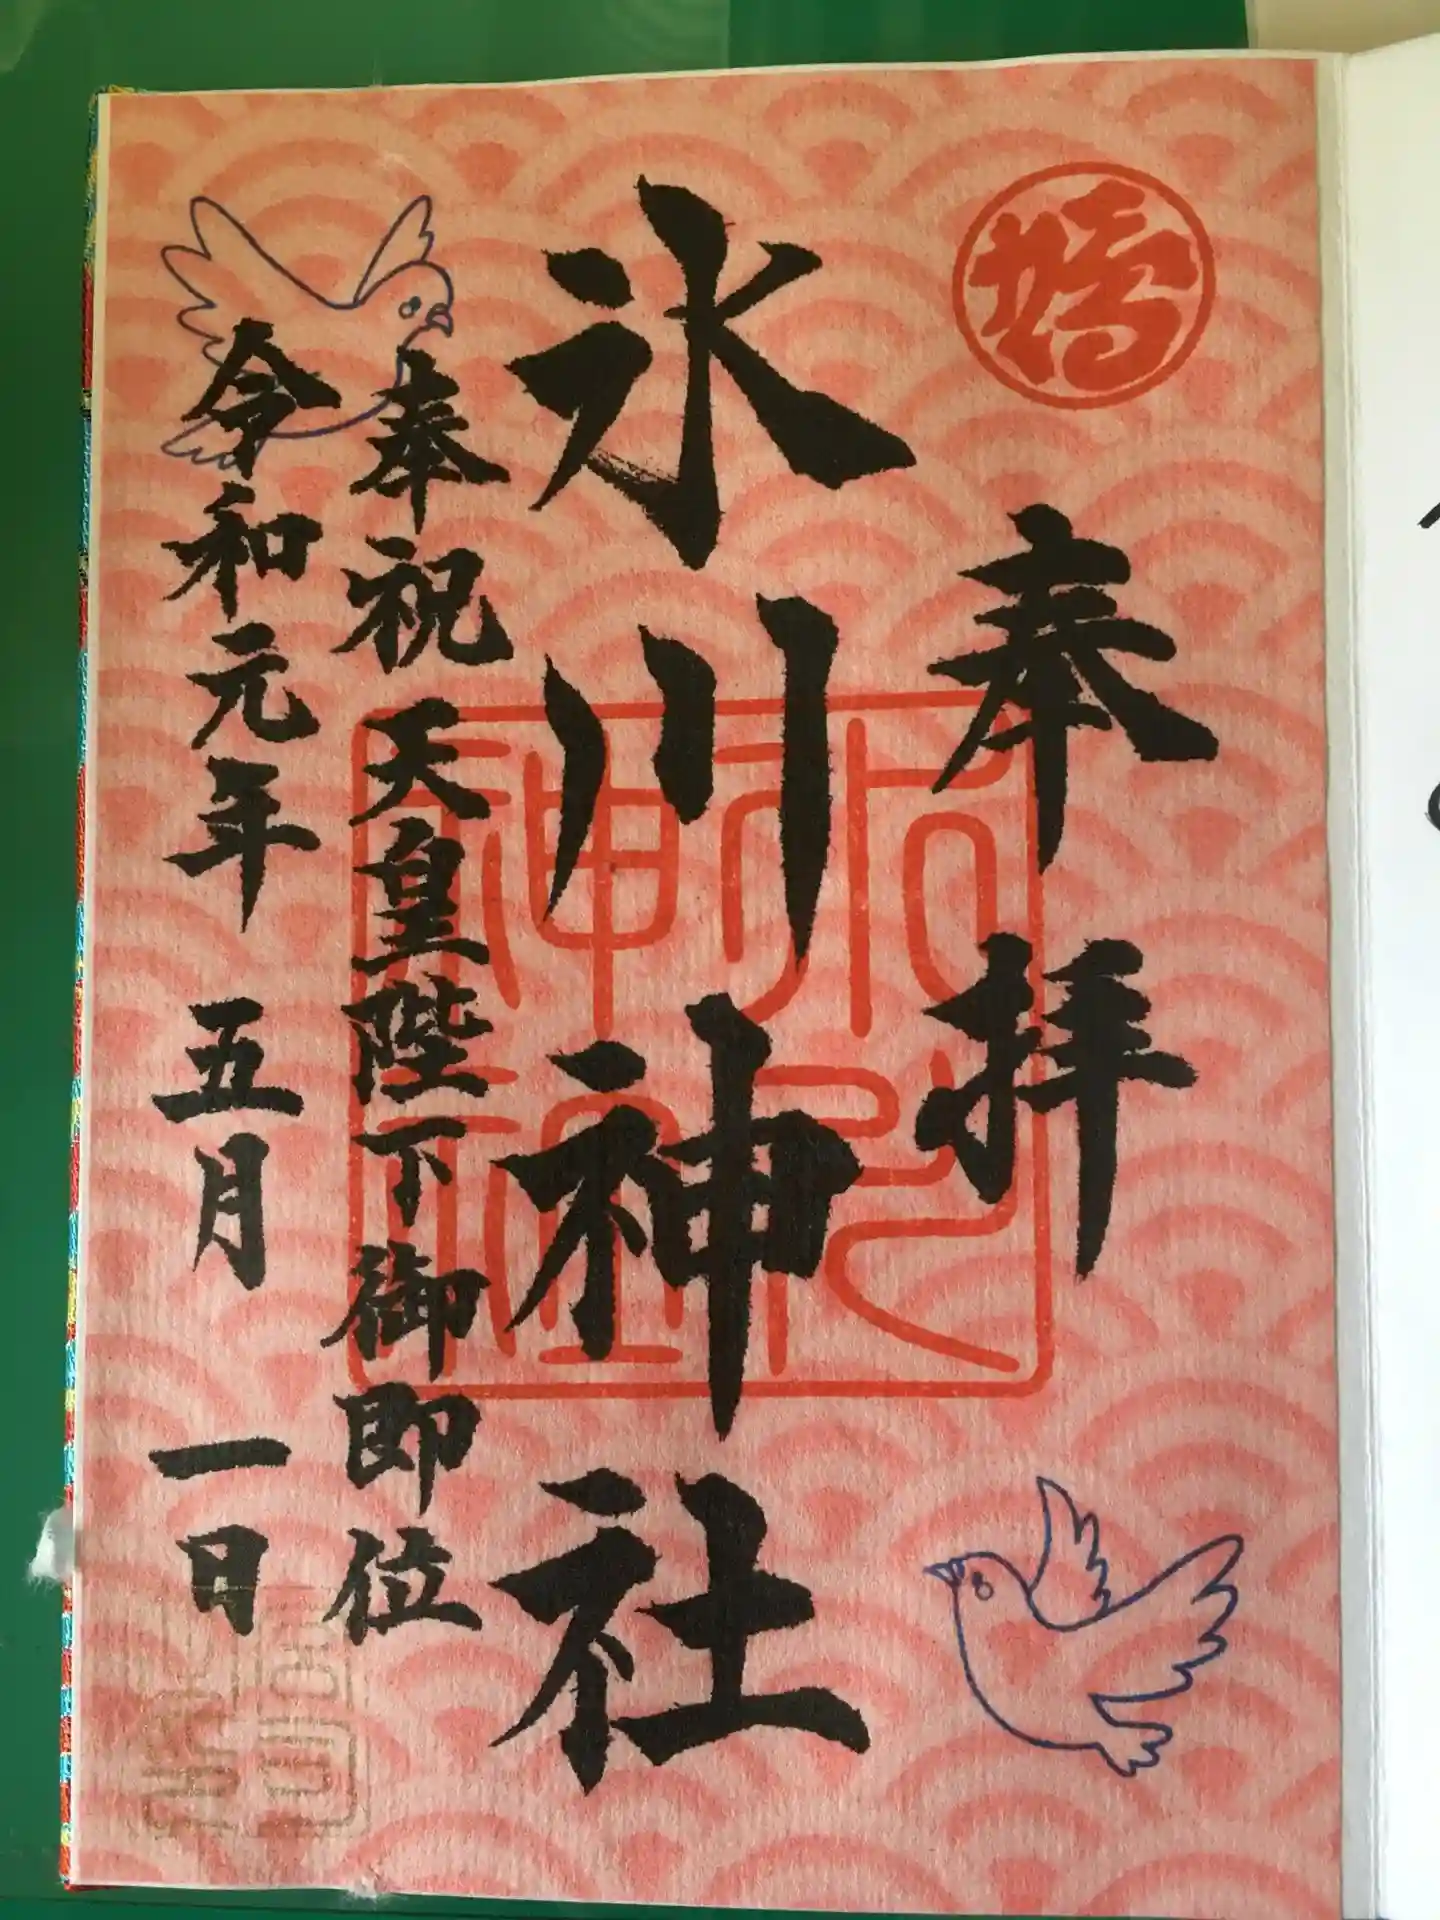 奉拝
氷川神社
奉祝 天皇陛下御即位
令和元年 五月 一日